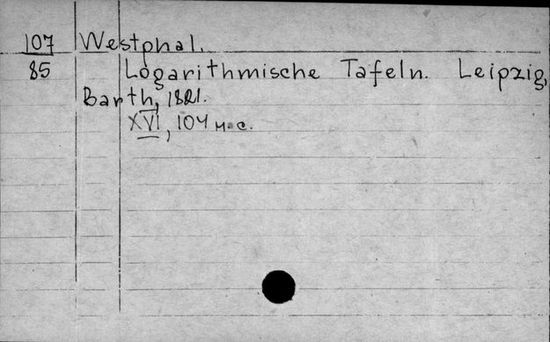 107 Westphal.
85 Logarithmische Tafeln. Leipzig,
Barth, 1821.
XVI, 104 н. с.